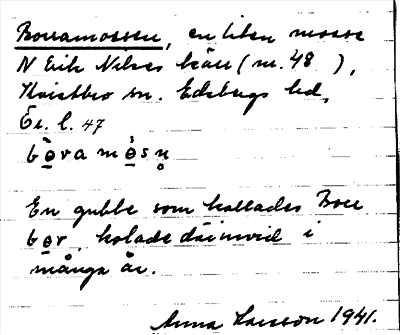 Bouamossen, en liten mosse
N Erik Nilses kärr (nr. 48 ),
Kvistbro sn. Edsbergs hd,
Ör. l. 47
bǫ̀va mǫ̀sn̥
En gubbe som kallades Bou
bǫv, kolade däinvid i
många år.
Anna Larsson 1941.